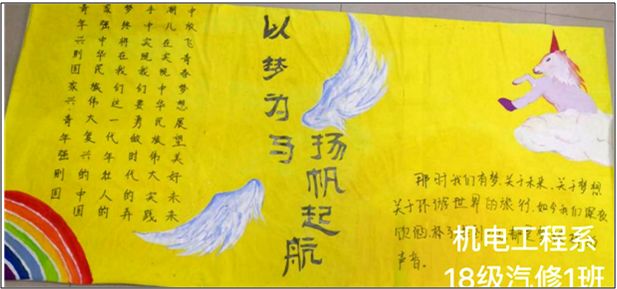 青年兴则国家兴青年强则国
家强中华民族伟大复兴的中国
梦终将在我们这一代年轻人的
手中实现我们要勇做时代的弄
潮儿在实现中华民族伟大实践
中放飞青春梦想展望美好未来
以梦为马
扬帆起航
那时我们有梦,关于未来,关于梦想
关于环游世界的旅行,如今我们深夜
饮酒,杯子
声音。
机电工程系
18级汽修1班